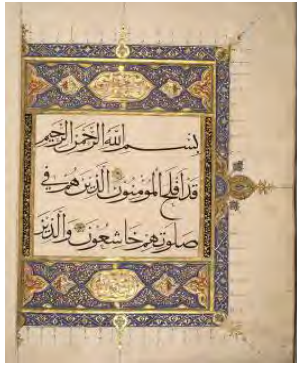 بسم الله الرحمن الرحيم
قد أفلح المؤمنون الذين هم في
صلوتهم خاشعون والذين